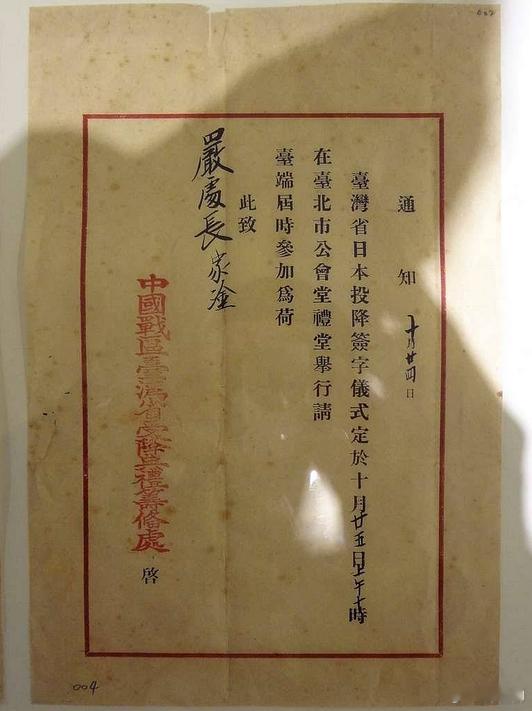 通知 十月廿四日
臺灣省日本投降簽字儀式定於十月廿五日上午十時
在臺北市公會堂禮堂舉行請
臺端屆時參加為荷
此致
嚴處長家淦
中國戰區臺灣省受降典禮籌備處
啓
004